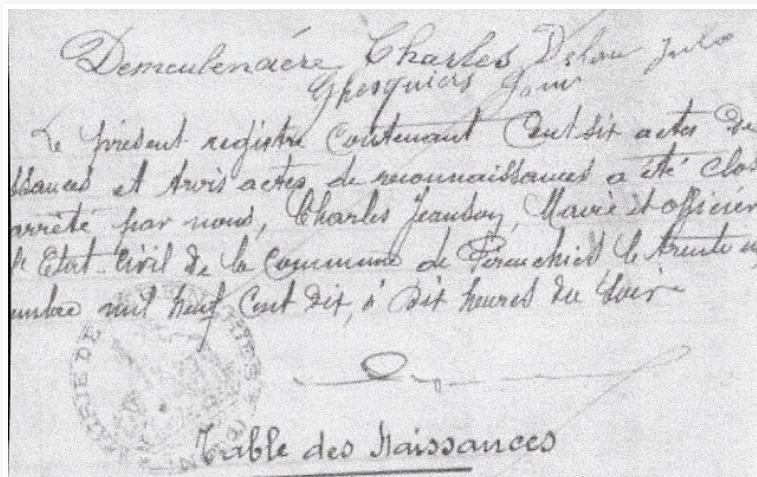 Demeulenaére Charles Delou Jules
Ghesquiers
Le présent registre contenant Cent dix actes de
ssances et trois actes de reconnaissances a été clos
arrêté par nous, Charles Jeanson, Maire et officier
l'Etat-Civil de la Commune de Perenchies le trente u
embre mil neuf Cent dix, à dix heures du Soir
MAIRIE DE
Table des Naissances